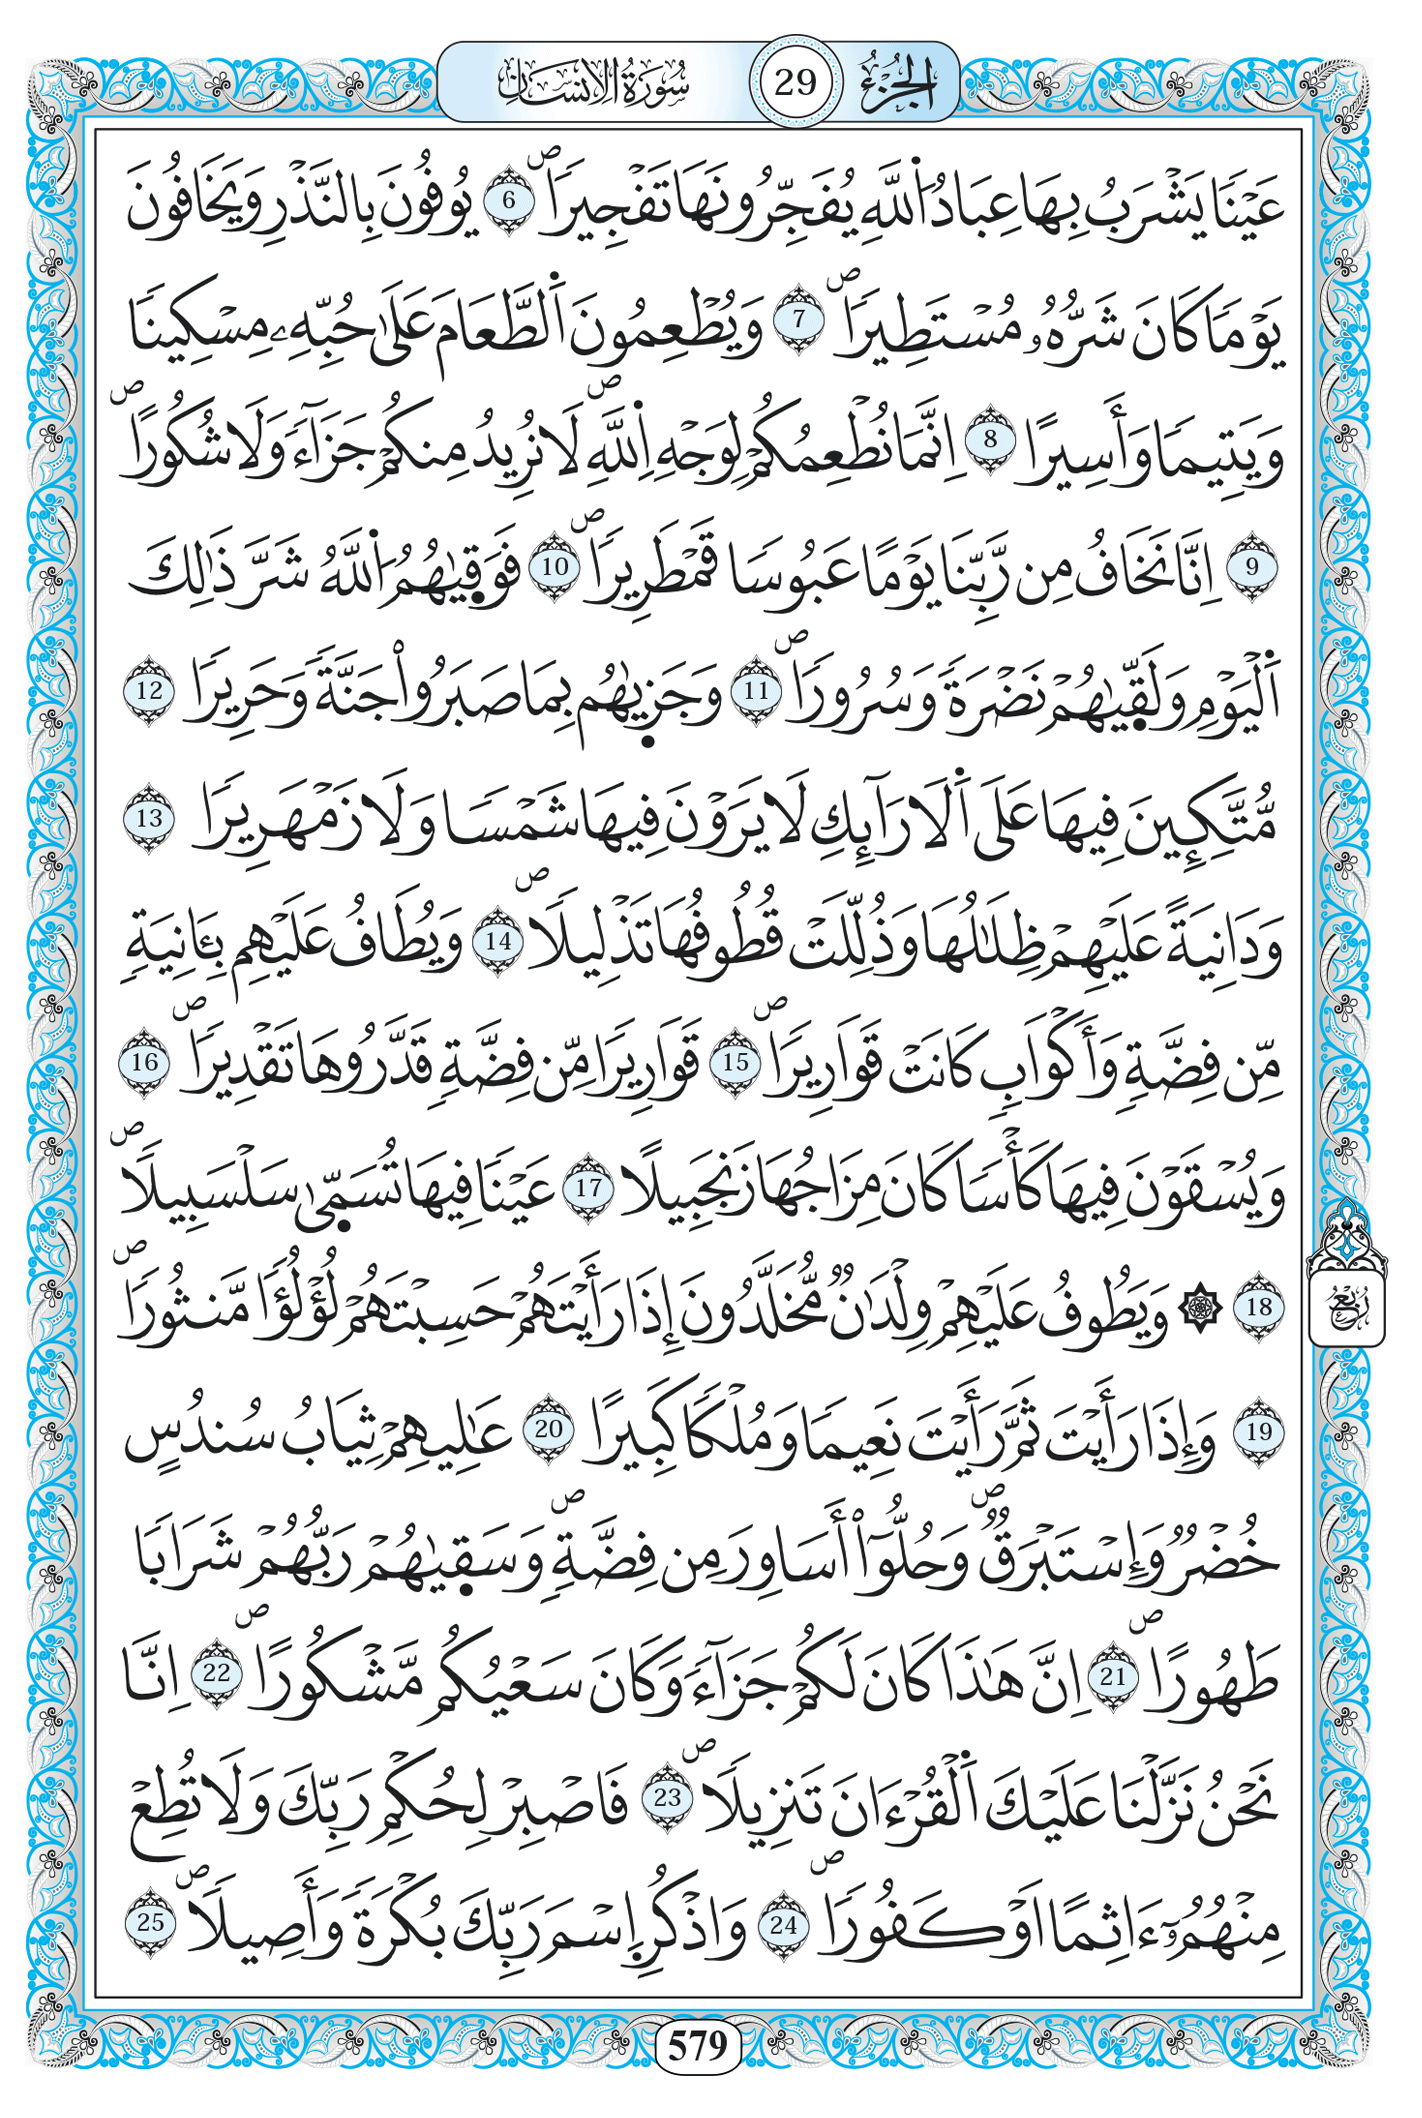 الجزء 29 سورة الانسان
عَيْنٗا يَشْرَبُ بِهَا عِبَادُ اُ۬للَّهِ يُفَجِّرُونَهَا تَفْجِيراٗۖ 6 يُوفُونَ بِالنَّذْرِ وَيَخَافُونَ
يَوْماٗ كَانَ شَرُّهُۥ مُسْتَطِيراٗۖ 7 وَيُطْعِمُونَ اَ۬لطَّعَامَ عَلَىٰ حُبِّهِۦ مِسْكِينٗا
وَيَتِيماٗ وَأَسِيرًا 8 اِنَّمَا نُطْعِمُكُمْ لِوَجْهِ اِ۬للَّهِۖ لَا نُرِيدُ مِنكُمْ جَزَآءٗ وَلَا شُكُورًاۖ
9 اِنَّا نَخَافُ مِن رَّبِّنَا يَوْمًا عَبُوسٗا قَمْطَرِيراٗۖ 10 فَوَقٜيٰهُمُ اُ۬للَّهُ شَرَّ ذَٰلِكَ
اَ۬لْيَوْمِ وَلَقّٜيٰهُمْ نَضْرَةٗ وَسُرُوراٗۖ 11 وَجَزٜيٰهُم بِمَا صَبَرُواْ جَنَّةٗ وَحَرِيراٗ 12
مُّتَّكِـِٕينَ فِيهَا عَلَى اَ۬لَارَآئِكِ لَا يَرَوْنَ فِيهَا شَمْسٗا وَلَا زَمْهَرِيراٗ 13
وَدَانِيَةً عَلَيْهِمْ ظِلَٰلُهَا وَذُلِّلَتْ قُطُوفُهَا تَذْلِيلاٗۖ 14 وَيُطَافُ عَلَيْهِم بِـَٔانِيَةٖ
مِّن فِضَّةٖ وَأَكْوَابٖ كَانَتْ قَوَارِيراٗۖ 15 قَوَارِيراٗ مِّن فِضَّةٖ قَدَّرُوهَا تَقْدِيراٗۖ 16
وَيُسْقَوْنَ فِيهَا كَأْسٗا كَانَ مِزَاجُهَا زَنجَبِيلًا 17 عَيْنٗا فِيهَا تُسَمّٜيٰ سَلْسَبِيلاٗۖ
18 ۞ وَيَطُوفُ عَلَيْهِمْ وِلْدَٰنٞ مُّخَلَّدُونَ إِذَا رَأَيْتَهُمْ حَسِبْتَهُمْ لُؤْلُؤاٗ مَّنثُوراٗۖ
19 وَإِذَا رَأَيْتَ ثَمَّ رَأَيْتَ نَعِيماٗ وَمُلْكاٗ كَبِيرًا 20 عَٰلِيهِمْ ثِيَابُ سُندُسٍ
خُضْرٞ وَإِسْتَبْرَقٞۖ وَحُلُّوٓاْ أَسَاوِرَ مِن فِضَّةٖۖ وَسَقٜيٰهُمْ رَبُّهُمْ شَرَابٗا
طَهُورًاۖ 21 اِنَّ هَٰذَا كَانَ لَكُمْ جَزَآءٗ وَكَانَ سَعْيُكُم مَّشْكُورًاۖ 22 اِنَّا
نَحْنُ نَزَّلْنَا عَلَيْكَ اَ۬لْقُرْءَانَ تَنزِيلاٗۖ 23 فَاصْبِرْ لِحُكْمِ رَبِّكَ وَلَا تُطِعْ
مِنْهُمُۥٓ ءَاثِمًا اَوْ كَفُوراٗۖ 24 وَاذْكُرِ اِ۪سْمَ رَبِّكَ بُكْرَةٗ وَأَصِيلاٗۖ 25
ربع
579